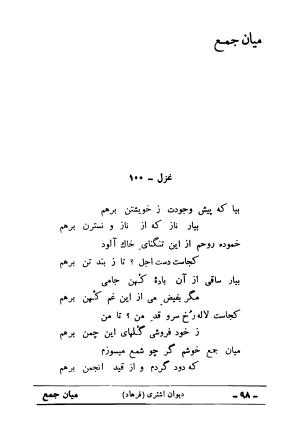 میان جمع
غزل - ۱۰۰
بیا که پیش وجودت ز خویشتن برهم
بیار ناز که از ناز و نسترن برهم
خموده روحم از این تنگنای خاك آلود
کجاست دست اجل ؟ تا ز بند تن برهم
بیار ساقی از آن بادهٔ کهن جامی
مگر بفیض می از این غم کهن برهم
کجاست لاله رُخ سرو قد من ؟ تا من
ز خود فروشی گلهای این چمن برهم
میان جمع خوشم گر چو شمع میسوزم
که دود گردم و از قید انجمن برهم
- ۹۸ - دیوان اشتری (فرهاد) میان جمع